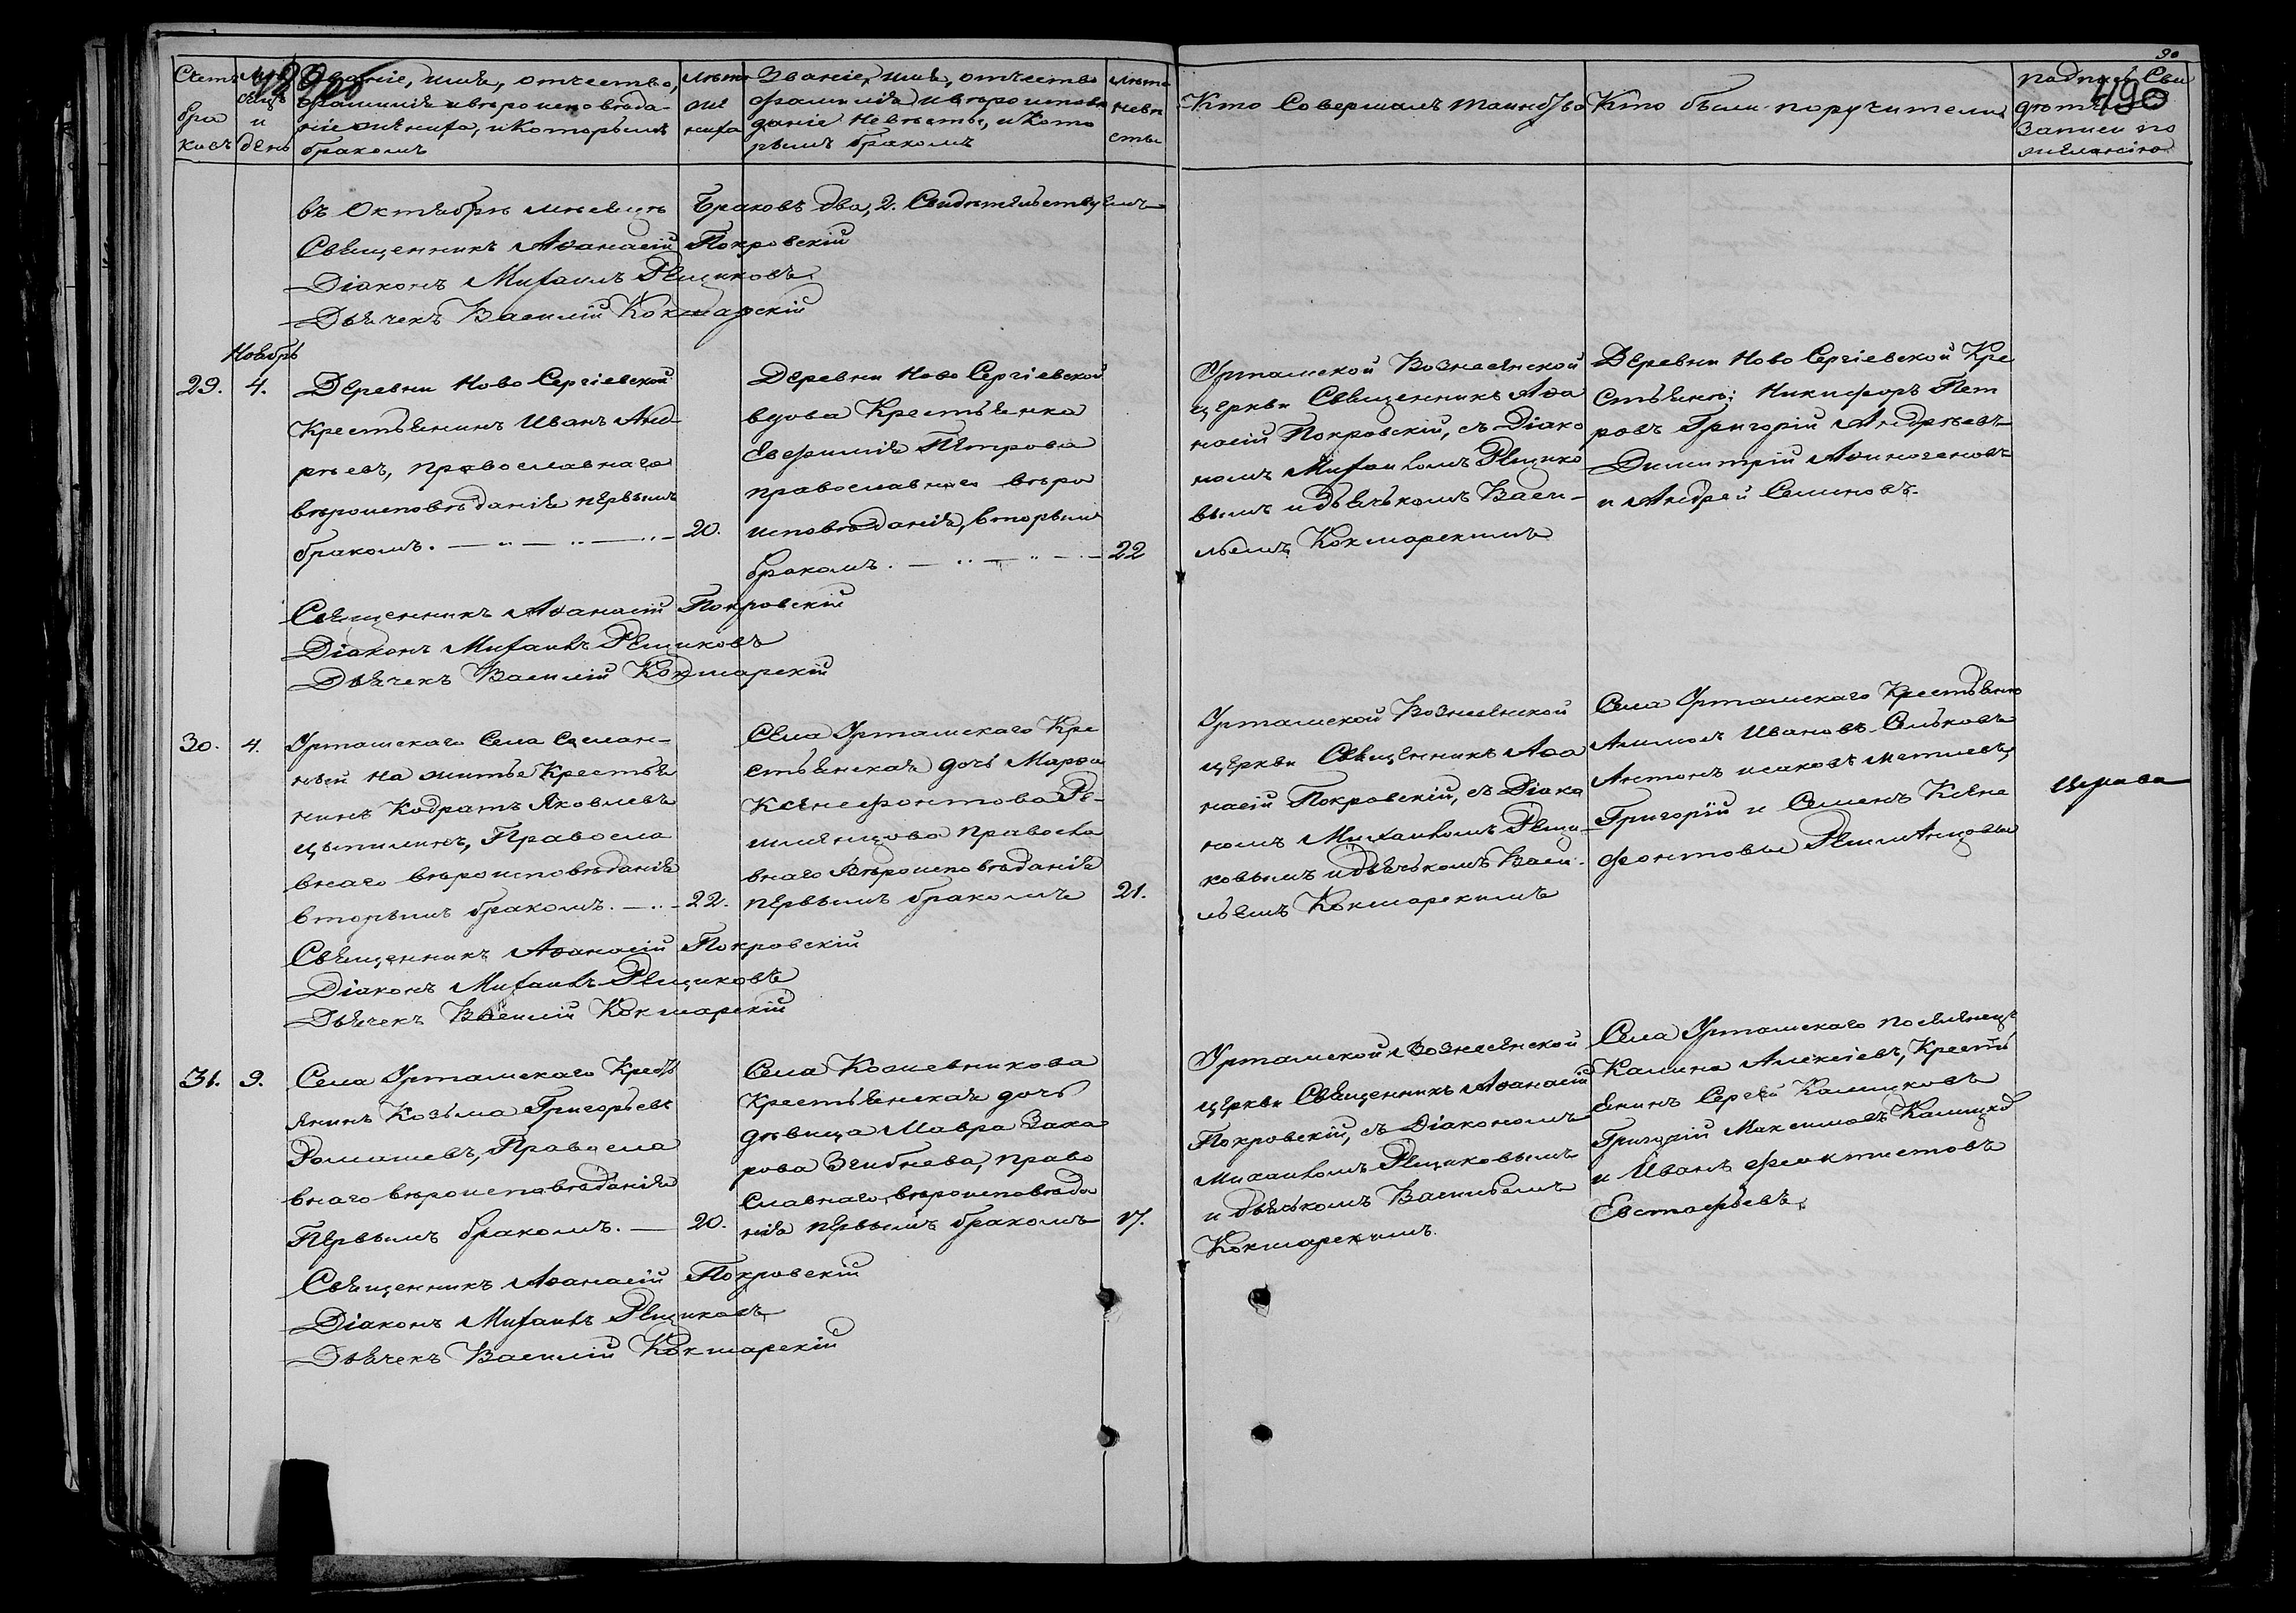 489об
30
490
Счетъ браковъ
Мѣсяцъ и день
Званіе, имя, отчество,
фамилія и вѣроисповѣда-
ніе жениха, и которымъ
бракомъ
Лѣта
же
ниха
Званіе, имя, отчество
фамилія и вѣроиспове
даніе невѣсты, и кото
рымъ бракомъ
Лѣта
невѣ
сты
Кто Совершалъ таинство
Кто были поручители
Подпись Сви
дѣт
Записи по
желанію
въ Октябрѣ мѣсяцѣ Браковъ два, 2. Свидѣтельствуемъ
Священникъ Аѳанасій Покровскій
Діаконъ Михаилъ Рещиковъ
Дьячекъ Василій Кокшарскій
Ноябрь
29. 4.
Деревни Ново Сергіевской
Крестьянинъ Иванъ Анд-
рѣевъ, православнаго
вѣроисповѣданія первымъ
бракомъ. 20.
Деревни Ново Сергіевской
вдова Крестьянка
Евфимия Петрова
православнаго вѣро
исповѣданія, вторымъ
бракомъ. 22
Уртамской Вознесенской
церкви Священникъ Аѳа
насій Покровскій, съ Діако
номъ Михаиломъ Рещико
вымъ и дьячькомъ Васи-
льемъ Кокшарскимъ
Деревни Ново Сергіевской Кре
стьяне; Никифоръ Пет
ровъ Григорій Андрѣевъ
Димитрій Аѳиногеновъ
и Андрей Семеновъ.
Священникъ Аѳанасій Покровскій
Діаконъ Михаилъ Рещиковъ
Дьячекъ Василій Кокшарскій
30. 4.
Уртамскаго Села Сослан-
ный на житье Крестья
нинъ Кодратъ Яковлевъ
Православнаго вѣроисповѣданія
вторымъ бракомъ. 22.
Села Уртамскаго Кре
стьянская дочь Марѳа
Ксенефонтова
православнаго Вѣроисповѣданія
первымъ бракомъ 21.
Уртамской Вознесенской
церкви Священникъ Аѳа
насій Покровскій, съ Діако
номъ Михаиломъ Рещи-
ковымъ и дьячькомъ Васи-
льемъ Кокшарскимъ
Села Уртамскаго Крестьяне
Ивановъ
Антонъ Исаковъ
Григорій и Семенъ Ксене
фонтовы
Священникъ Аѳанасій Покровскій
Діаконъ Михаилъ Рещиковъ
Дьячекъ Василій Кокшарскій
31. 9.
Села Уртамскаго Кресть
янинъ Козьма Григорьевъ
Ромашевъ, Правосла
внаго вѣроисповѣданія
Первымъ бракомъ. 20.
Села Кожевникова
Крестьянская дочь
дѣвица Мавра Заха
рова Згибнева, право
славнаго, вѣроисповѣда
нія первымъ бракомъ 17.
Уртамской Вознесенской
церкви Священникъ Аѳанасій
Покровскій, съ Діакономъ
Михаиломъ Рещиковымъ
и дьячькомъ Васильемъ
Кокшарскимъ.
Села Уртамскаго поселенецъ
Калина Алексіевъ, Кресть
янинъ Сергѣй
Григорій Максимовъ
и Иванъ Феоктистовъ
Евстафьевъ.
Священникъ Аѳанасій Покровскій
Діаконъ Михаилъ Рещиковъ
Дьячекъ Василій Кокшарскій